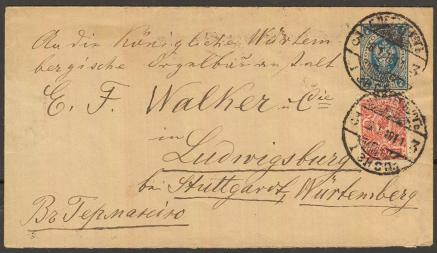 An die Königliche Würtem
bergische Orgelbauanstalt
E. F. Walker & Cie
in
Ludwigsburg
bei Stuttgardt, Würtemberg
Въ Германію